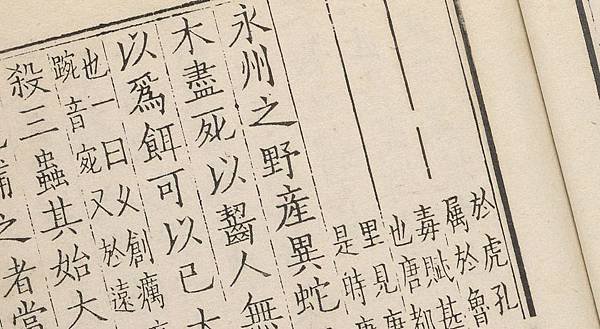 於虎孔
屬於魯
毒賦甚
也唐都
里見唐
是時
永州之野産異蛇
木盡死以齧人無
以爲餌可以已大
也一曰攵創癘
踠音宛又於遠
殺三蟲其始大
捕之者當